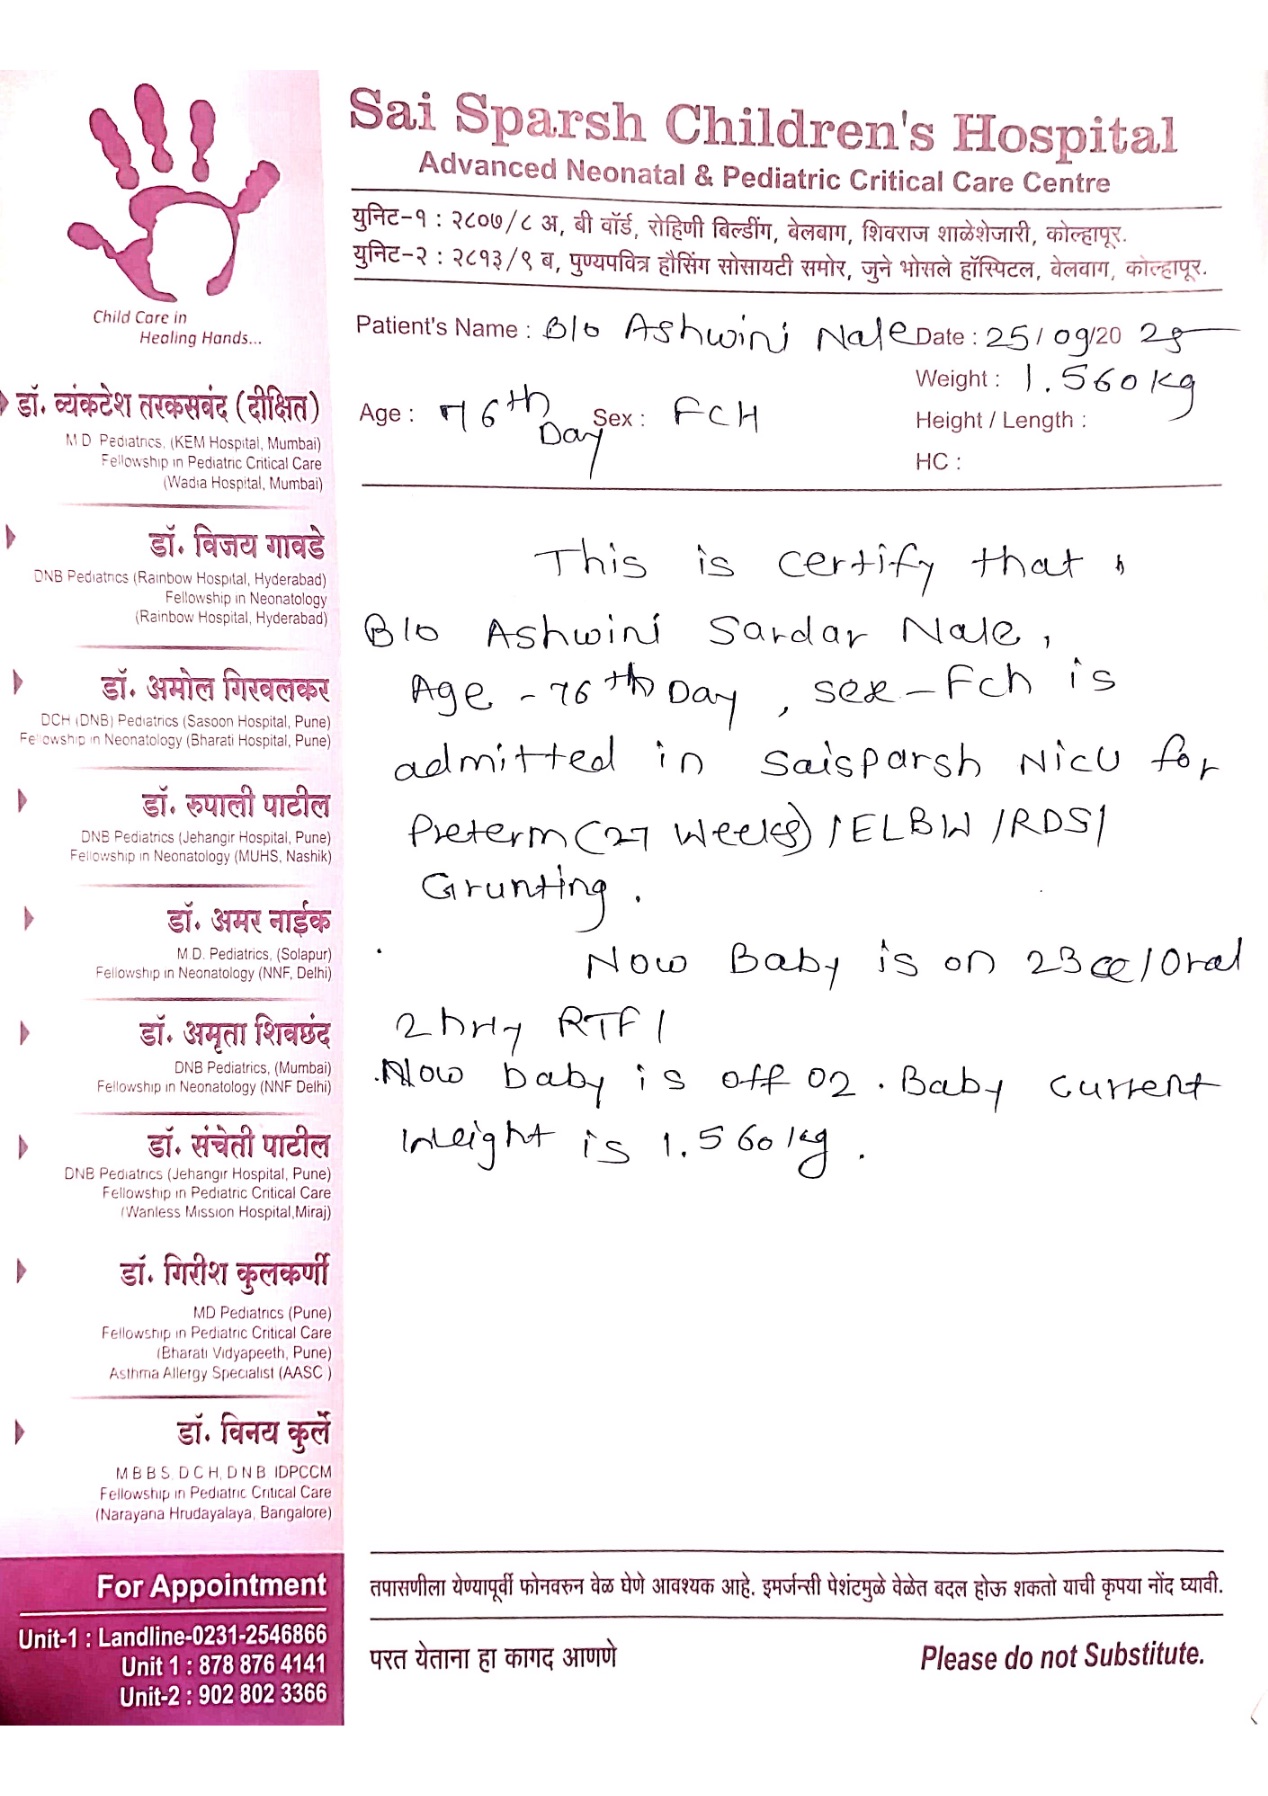 Sai Sparsh Children's Hospital
Advanced Neonatal & Pediatric Critical Care Centre
युनिट-१ : २८०७/८ अ, बी वॉर्ड, रोहिणी बिल्डींग, बेलबाग, शिवराज शाळेशेजारी, कोल्हापूर.
युनिट-२ : २८१३/९ ब, पुण्यपवित्र हौसिंग सोसायटी समोर, जुने भोसले हॉस्पिटल, वेलवाग, कोल्हापूर.
Child Care in
Healing Hands...
Patient's Name : B/o Ashwini Nale Date : 25/09/20 25
Weight : 1.560 kg
Age : 76th Day Sex : FCH
Height / Length :
HC :
डॉ. व्यंकटेश तरकसबंद (दीक्षित)
M D Pediatrics, (KEM Hospital, Mumbai)
Fellowship in Pediatric Critical Care
(Wadia Hospital, Mumbai)
डॉ. विजय गावडे
DNB Pediatrics (Rainbow Hospital, Hyderabad)
Fellowship in Neonatology
(Rainbow Hospital, Hyderabad)
डॉ. अमोल गिरवलकर
DCH (DNB) Pediatrics (Sasoon Hospital, Pune)
Fellowship in Neonatology (Bharati Hospital, Pune)
डॉ. रुपाली पाटील
DNB Pediatrics (Jehangir Hospital, Pune)
Fellowship in Neonatology (MUHS, Nashik)
डॉ. अमर नाईक
M.D. Pediatrics, (Solapur)
Fellowship in Neonatology (NNF, Delhi)
डॉ. अमृता शिवछंद
DNB Pediatrics, (Mumbai)
Fellowship in Neonatology (NNF Delhi)
डॉ. संचेती पाटील
DNB Pediatrics (Jehangir Hospital, Pune)
Fellowship in Pediatric Critical Care
(Wanless Mission Hospital,Miraj)
डॉ. गिरीश कुलकर्णी
MD Pediatrics (Pune)
Fellowship in Pediatric Critical Care
(Bharati Vidyapeeth, Pune)
Asthma Allergy Specialist (AASC )
डॉ. विनय कुर्ले
M B B S, D C H, D N B, IDPCCM
Fellowship in Pediatric Critical Care
(Narayana Hrudayalaya, Bangalore)
For Appointment
Unit-1 : Landline-0231-2546866
Unit 1 : 878 876 4141
Unit-2 : 902 802 3366
This is certify that
B/o Ashwini Sardar Nale,
Age - 76th Day, sex - Fch is
admitted in Saisparsh NicU for
Preterm (27 weeks) / ELBW / RDS/
Grunting.
Now Baby is on 23cc/Oral
2 hrly RTF/
Now baby is off O2. Baby current
Weight is 1.560 kg.
तपासणीला येण्यापूर्वी फोनवरुन वेळ घेणे आवश्यक आहे. इमर्जन्सी पेशंटमुळे वेळेत बदल होऊ शकतो याची कृपया नोंद घ्यावी.
परत येताना हा कागद आणणे Please do not Substitute.